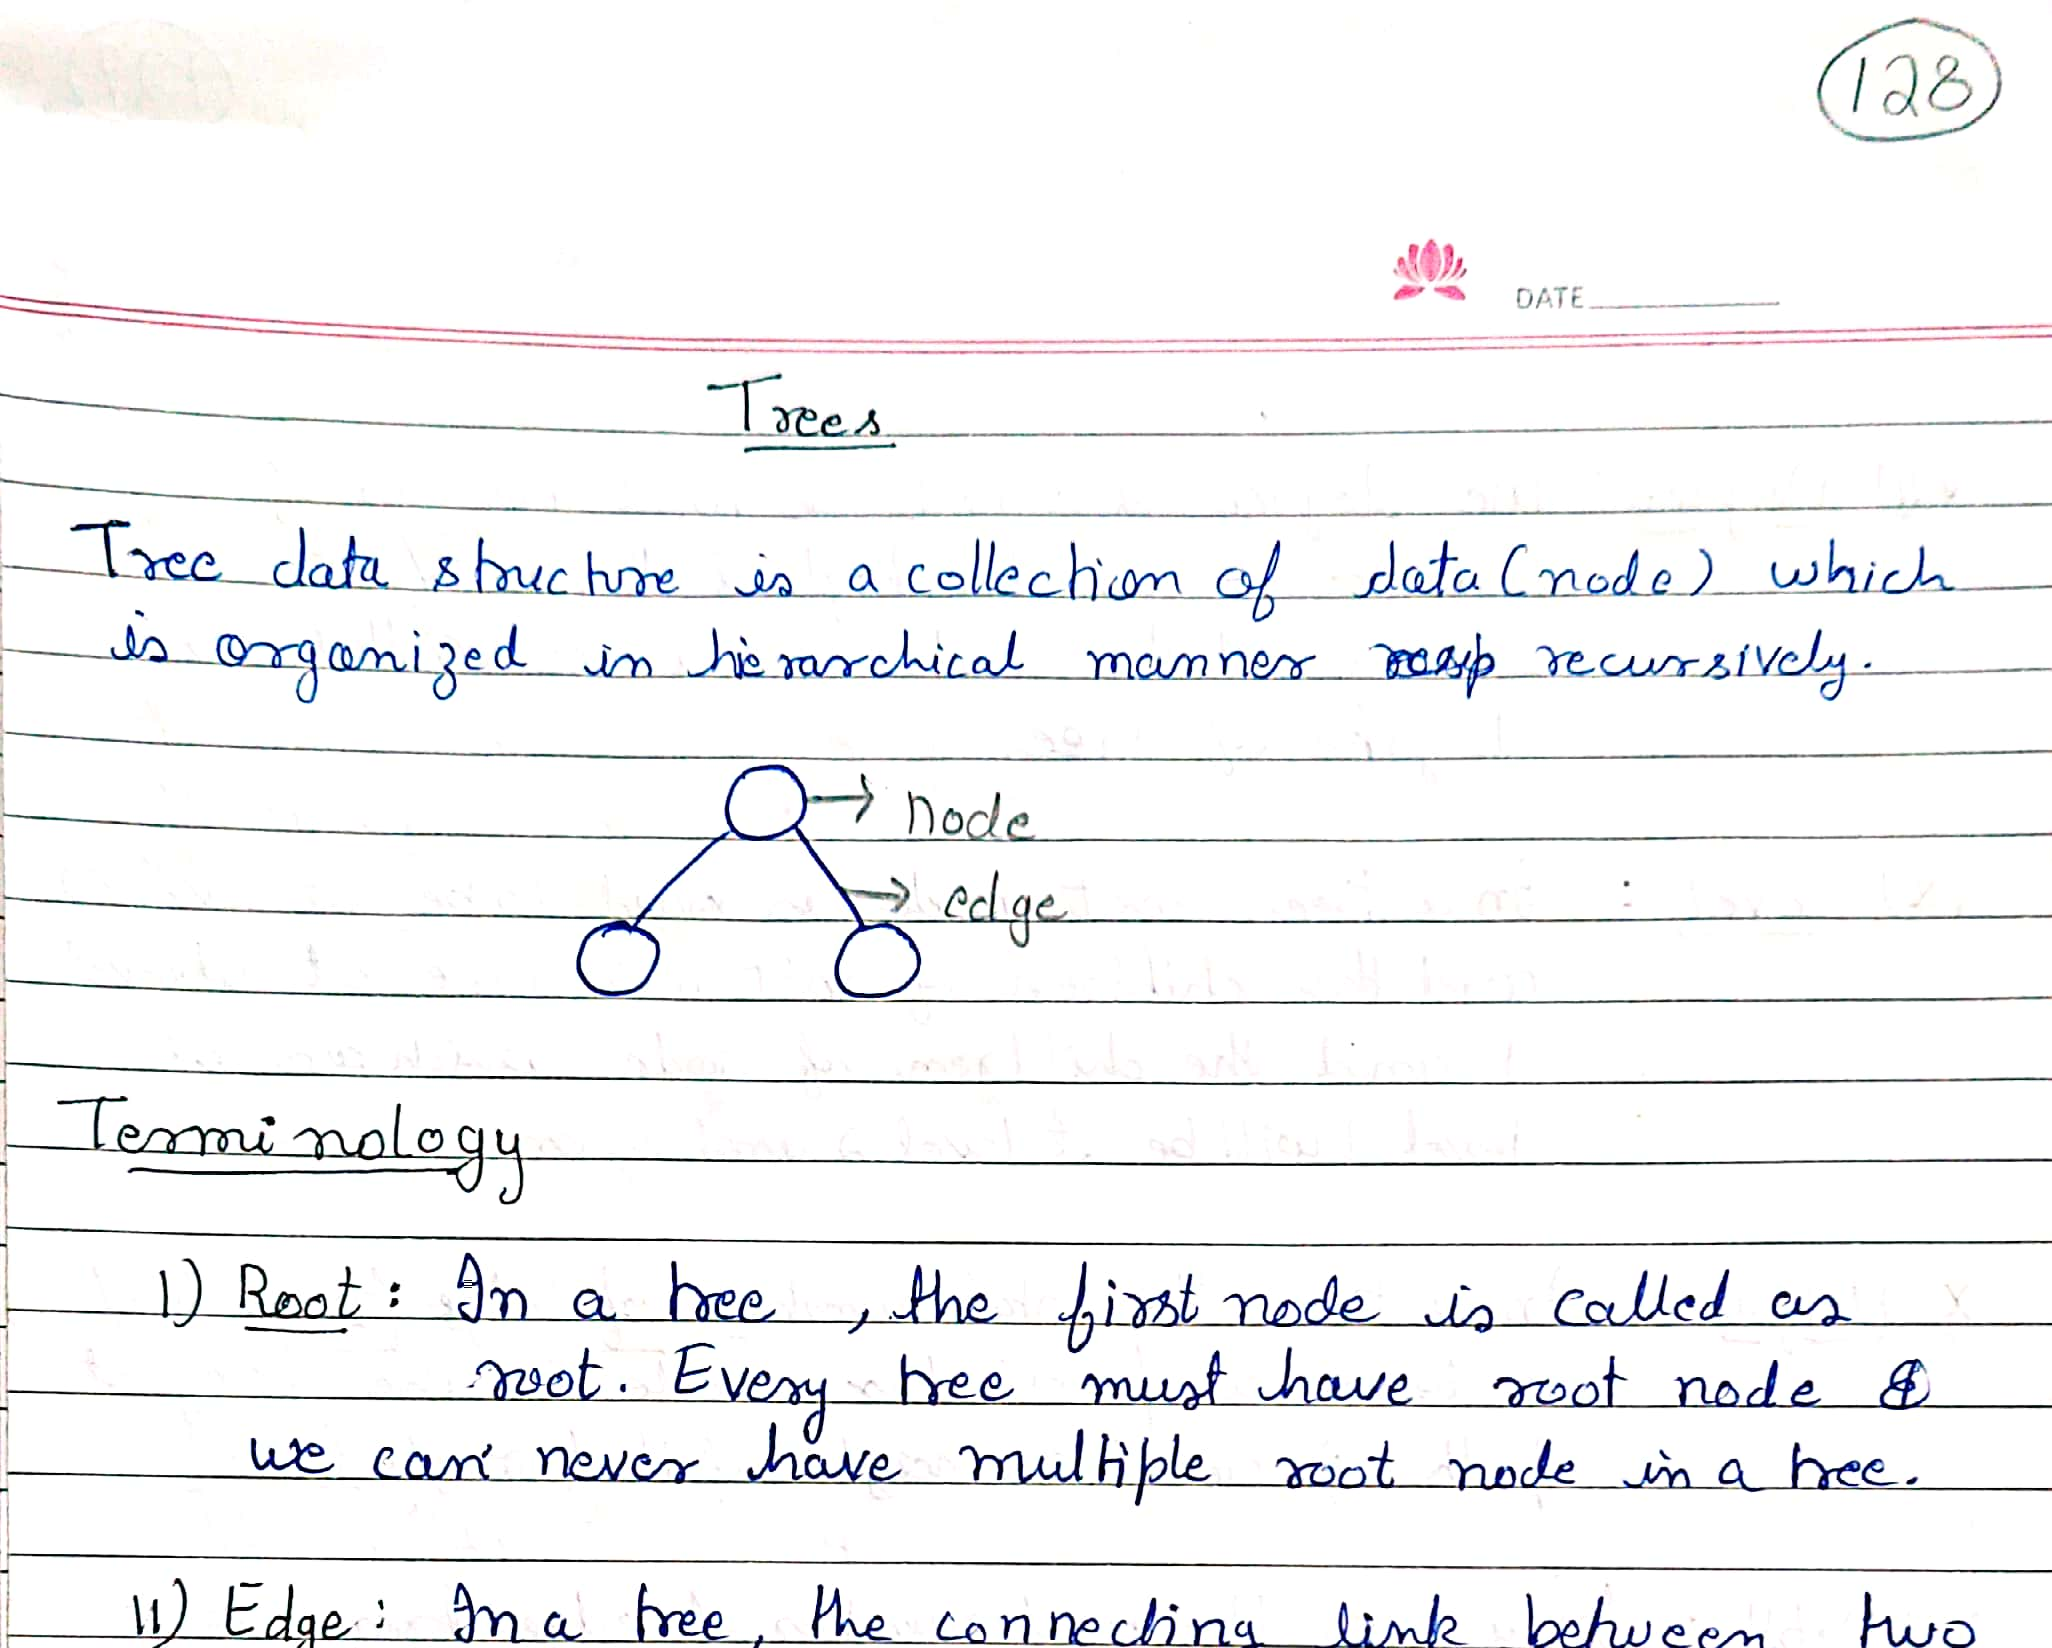 128
DATE
Trees
Tree data structure is a collection of data (node) which
is organized in hierarchical manner recursively.
→ node
→ edge
Terminology
I) Root : In a tree , the first node is called as
root. Every tree must have root node &
we can never have multiple root node in a tree.
II) Edge : In a tree, the connecting link between two